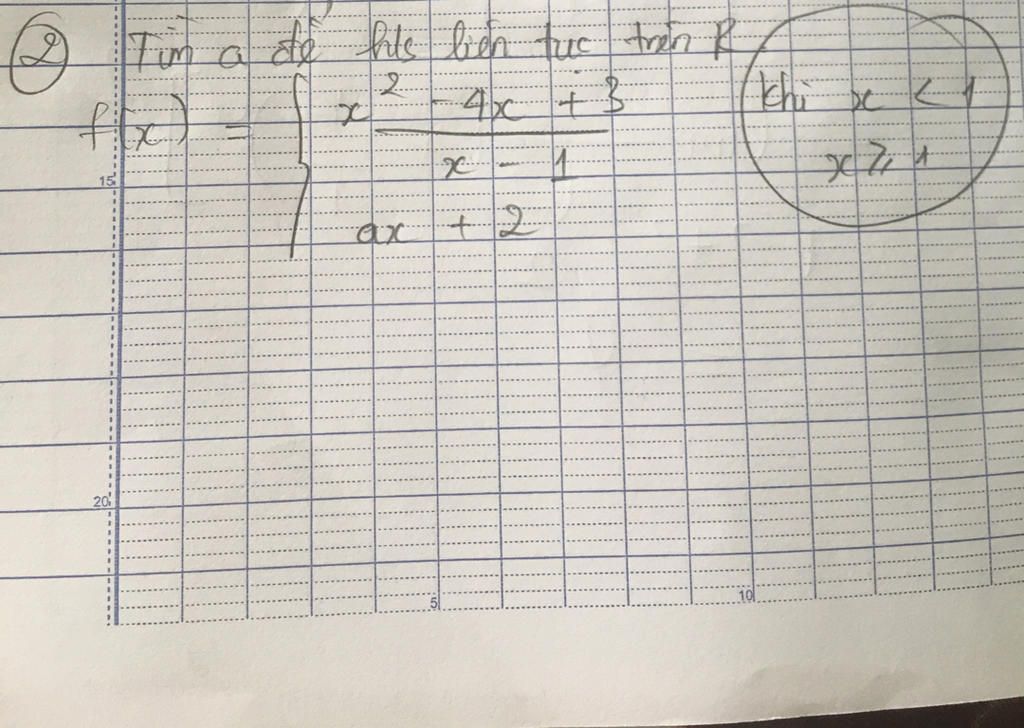 ② Tìm a để hs liên tục trên R
f(x) = { x² - 4x + 3 khi x < 1
x - 1 x ≥ 1
15
ax + 2
20
5 10